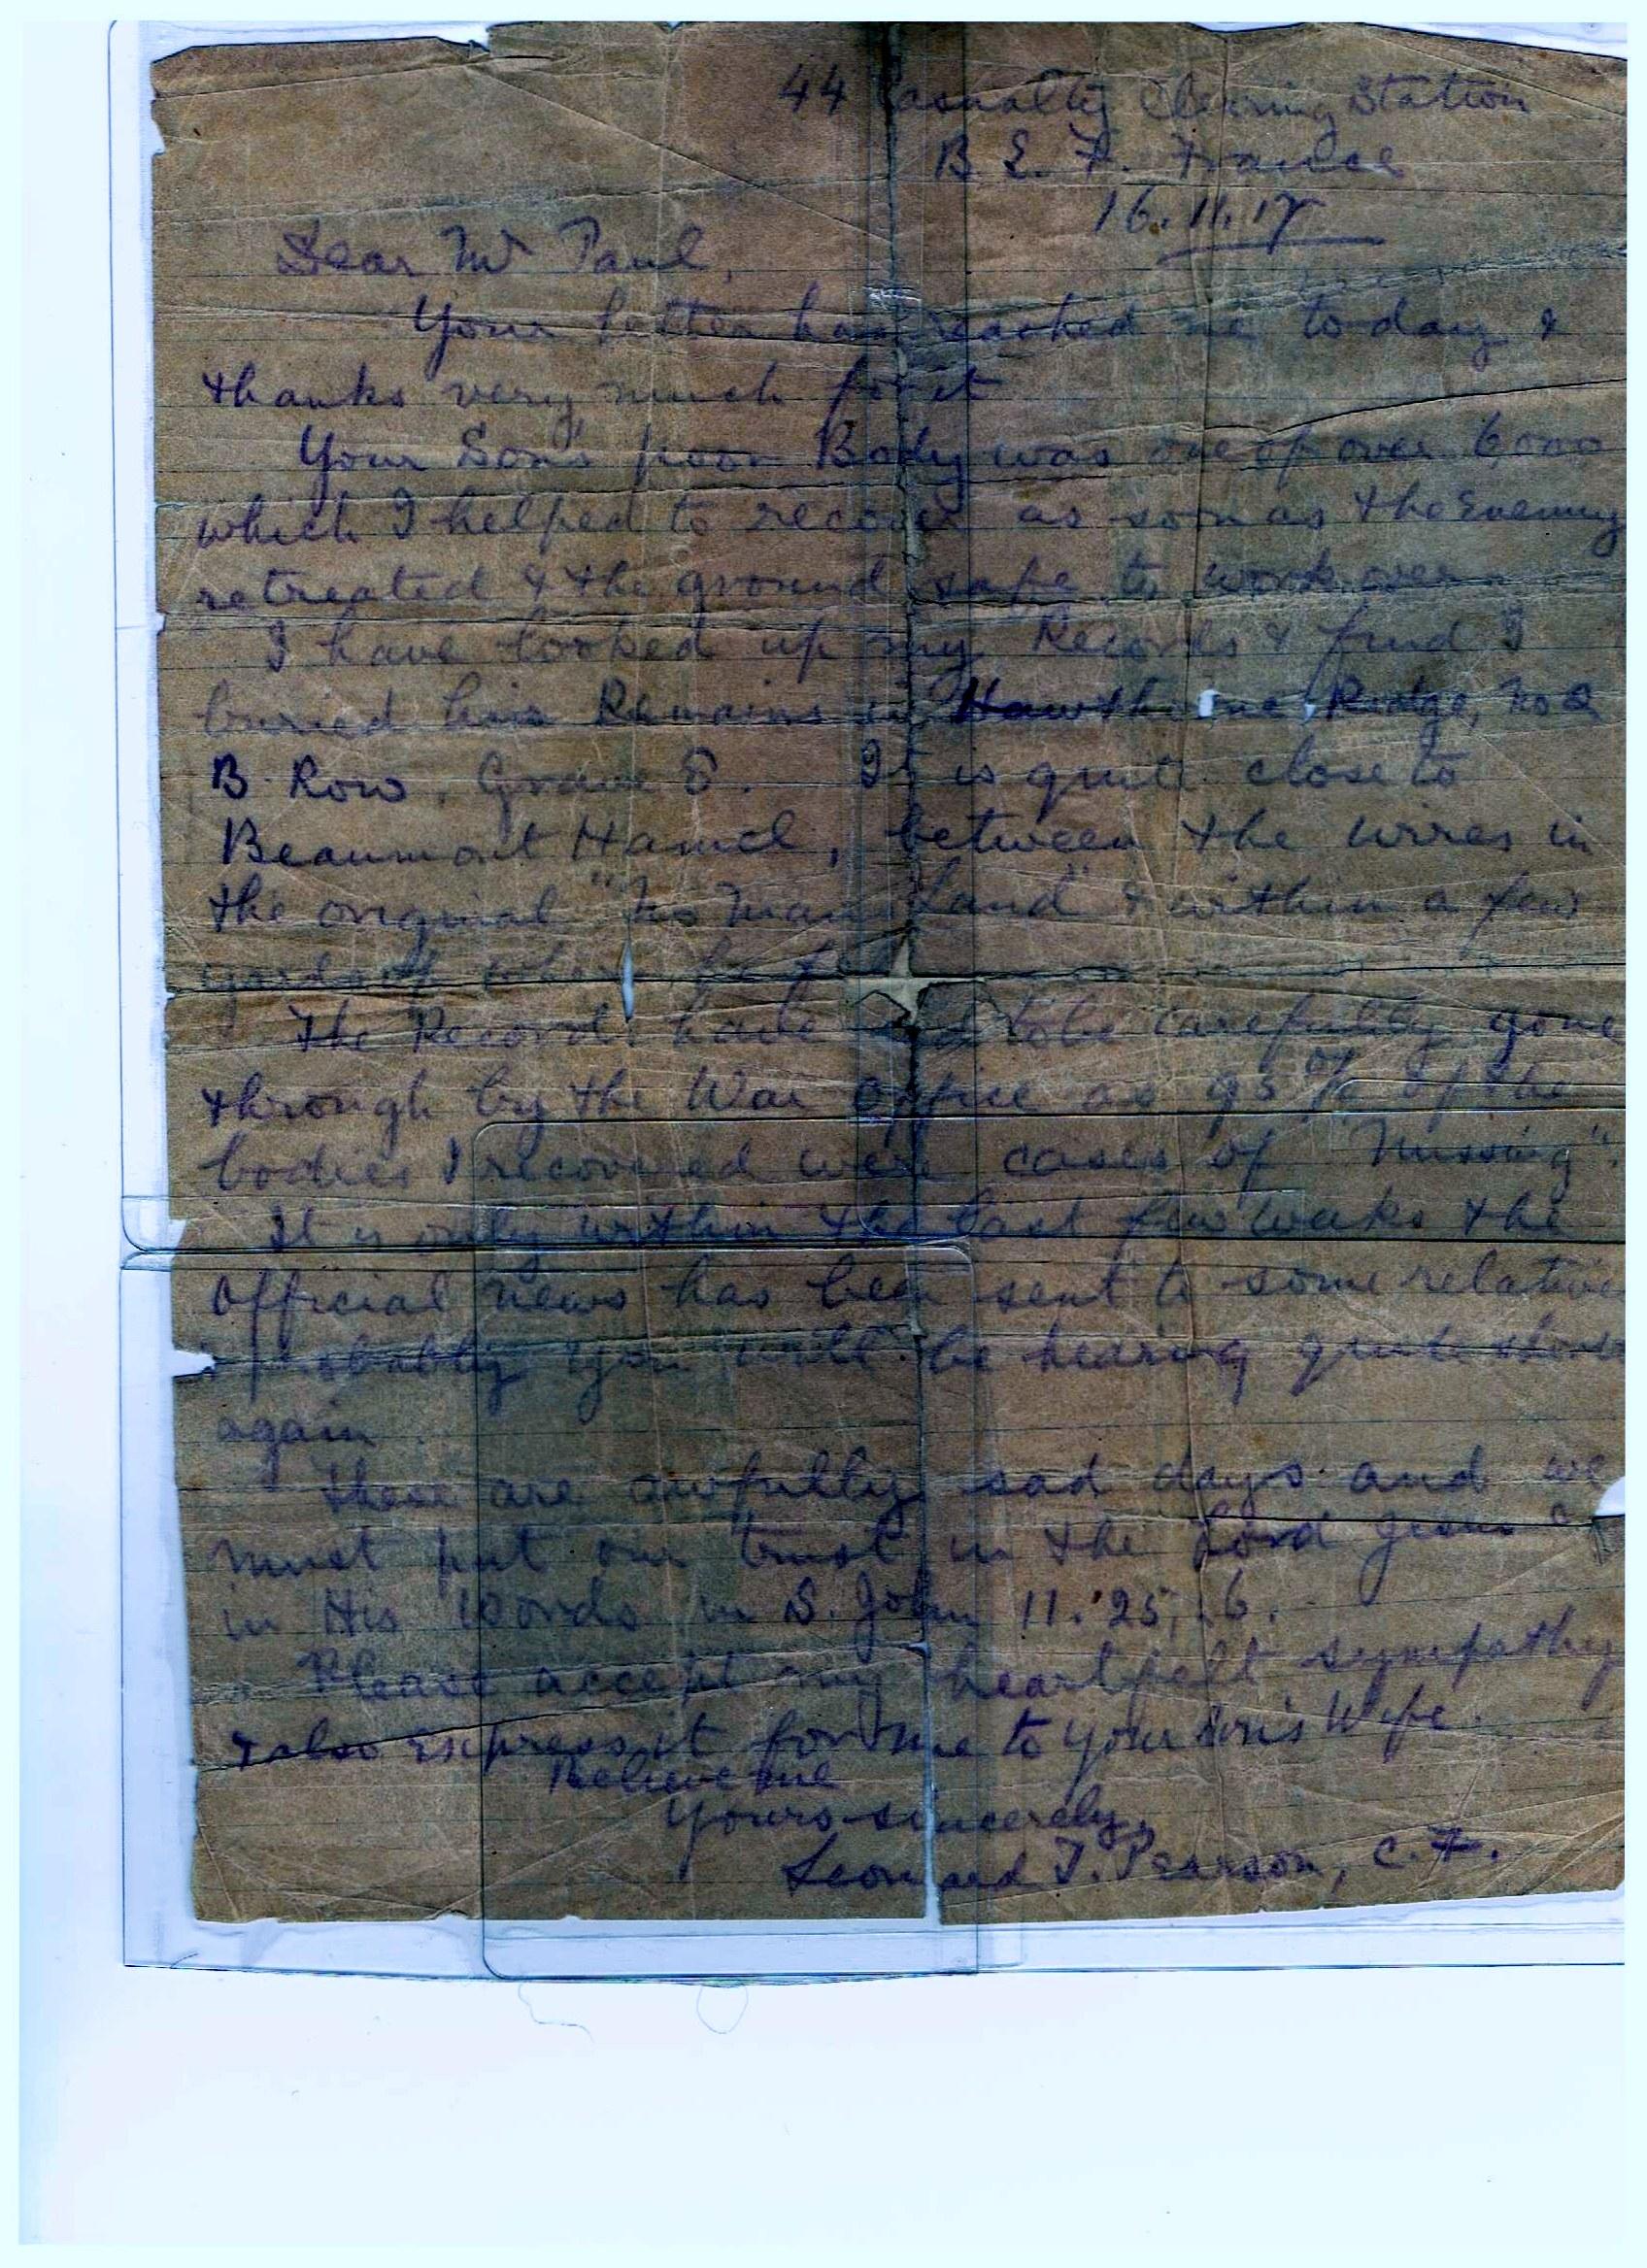 44 Casualty Clearing Station
B. E. F. France
16.11.17
Dear Mr Paul,
Your letter has reached me to day &
thanks very much for it
Your Son's poor Body was one of over 6,000
which I helped to recover as soon as the Enemy
retreated & the ground safe to work over
I have looked up my Records & find I
buried his Remains in Hawthorne Ridge, No 2
B. Row, Grave 8. It is quite close to
Beaumont Hamel, between the wires in
the original "No Mans Land" & within a few
yards of where he
The Records have had to be carefully gone
through by the War Office as 95 % of the
bodies I recovered were cases of "Missing".
It is only within the last few weeks the
Official news has been sent to some relatives
probably you will be hearing quite shortly
again.
These are awfully sad days and we
must put our trust in the Lord Jesus &
in His Words in S. John 11. 25, 26.
Please accept my heartfelt sympathy
& also express it for me to your Son's Wife.
Believe me
Yours sincerely,
Leonard T. Pearson, C.F.